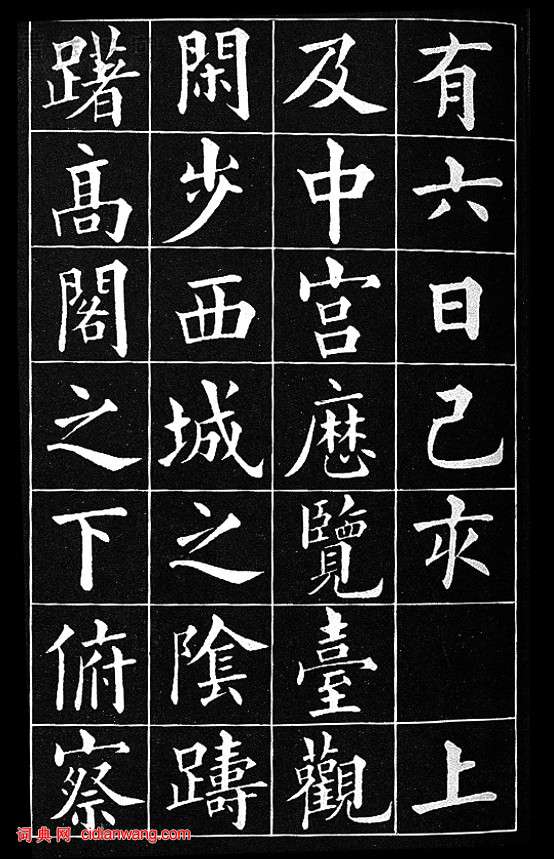 有六日己亥 上
及中宮歷覽臺觀
閑步西城之陰躊
躇髙閣之下俯察
词典网 cidianwang.com